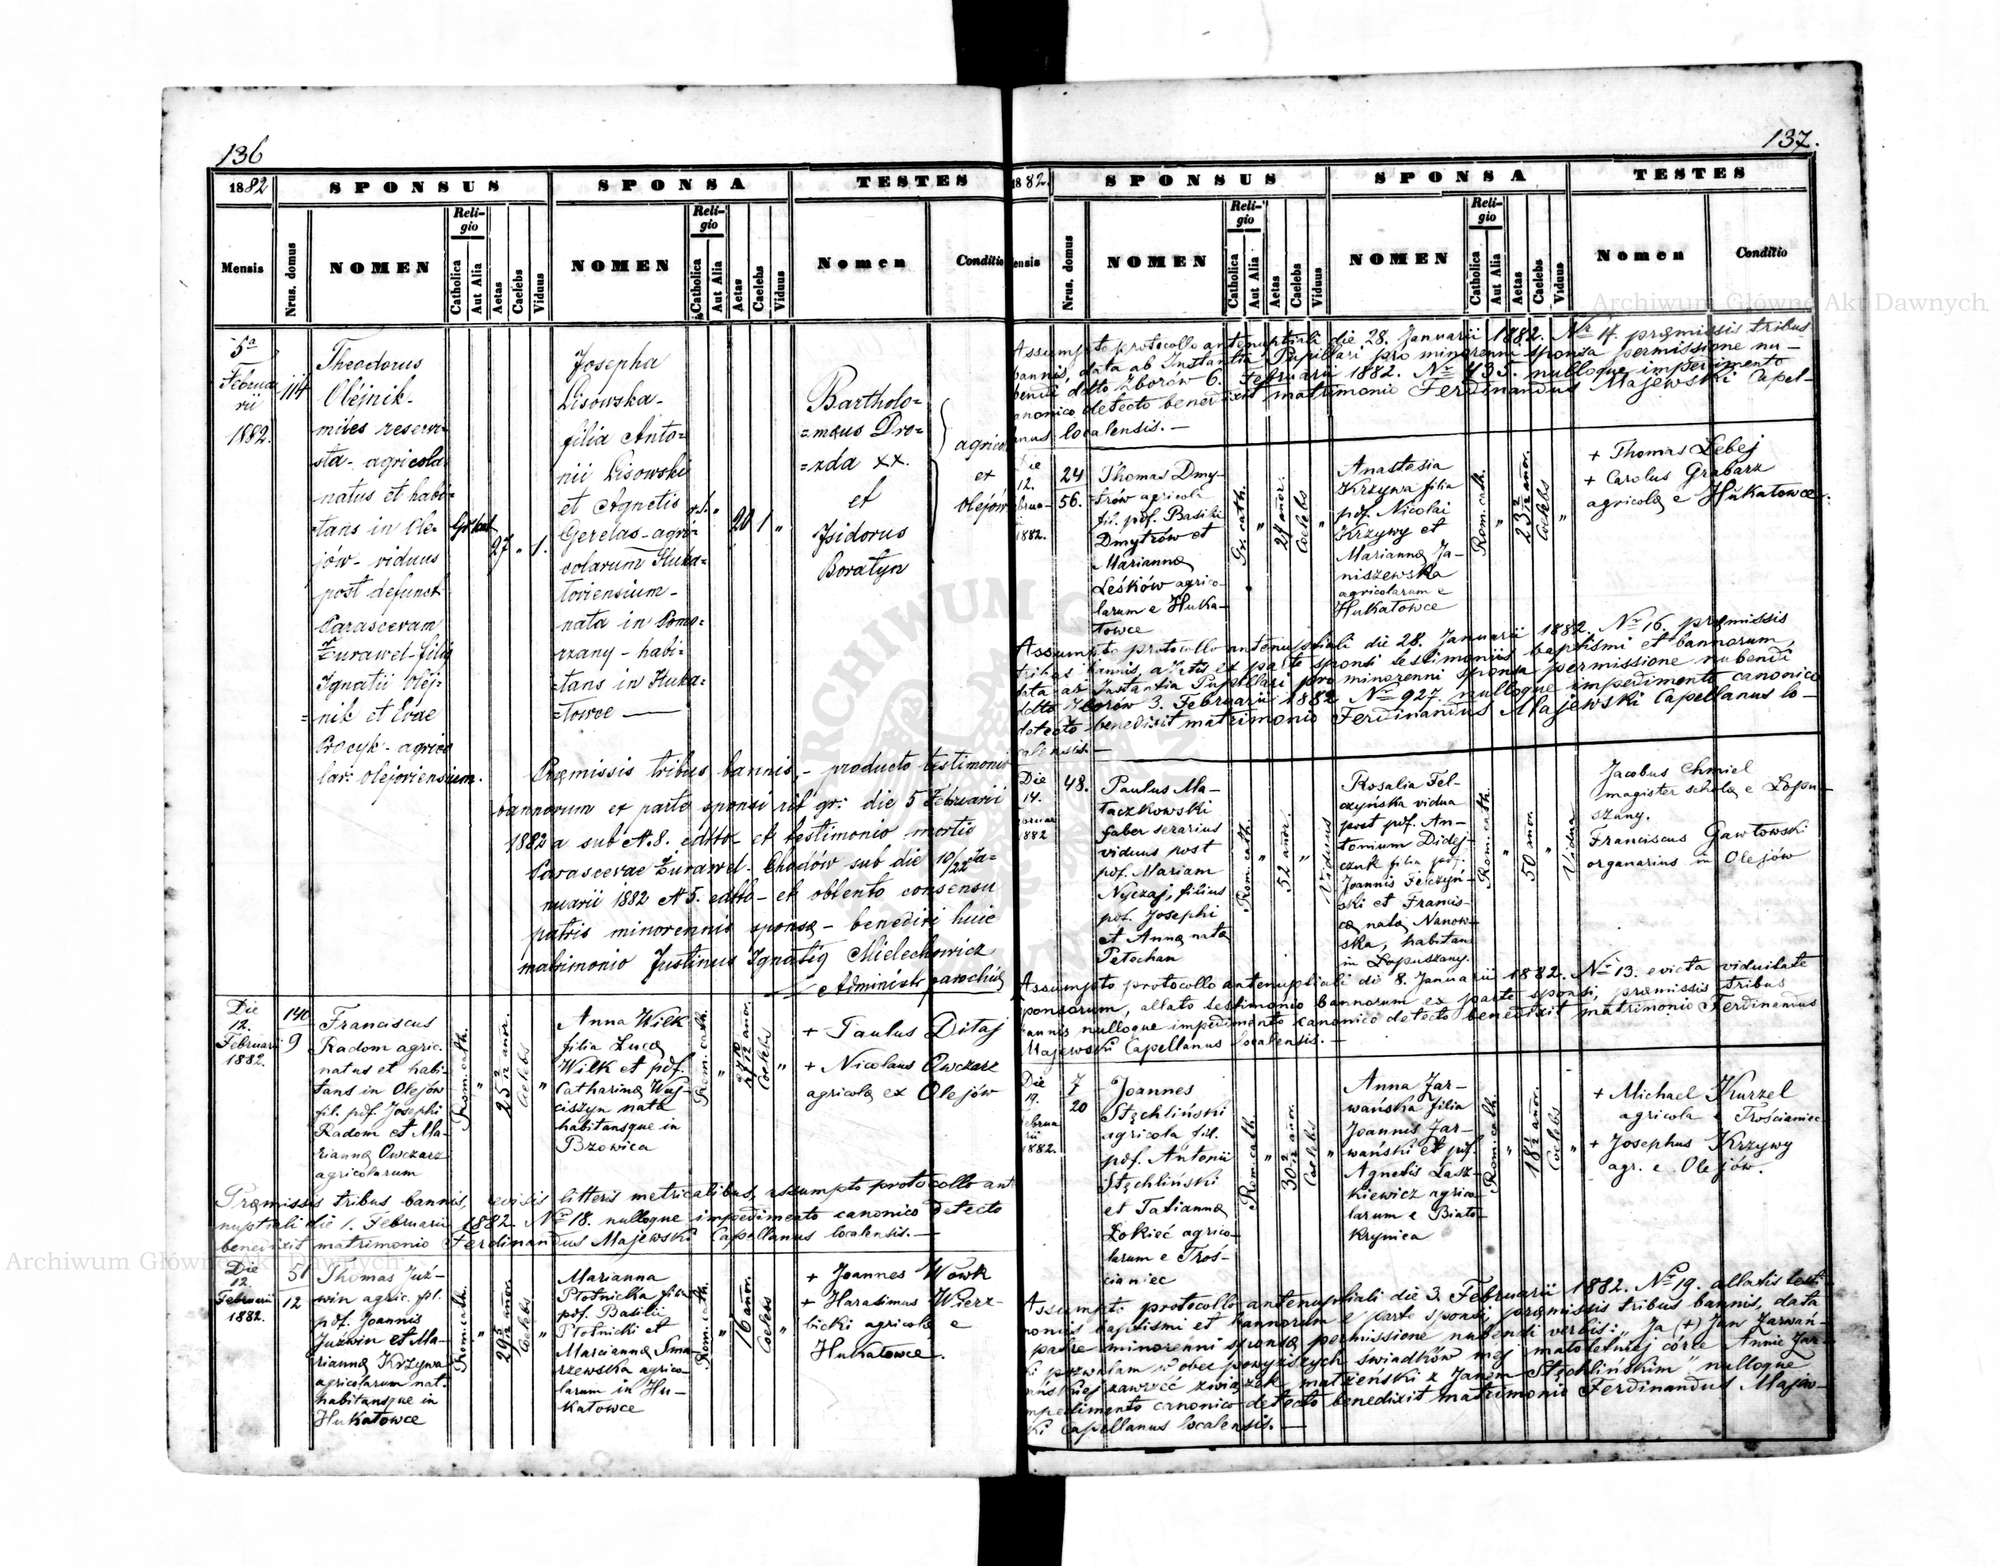 136
1882
SPONSUS
SPONSA
TESTES
Mensis
Nrus. domus
NOMEN
Religio
Catholica
Aut Alia
Aetas
Caelebs
Viduus
NOMEN
Religio
Catholica
Aut Alia
Aetas
Caelebs
Viduus
Nomen
Conditio
5a
Februa
rii
1882.
114
Theodorus
Olejnik-
miles reservi-
sta- agricola
natus et habi-
tans in Ole-
jów- viduus
post defunct.
Parascevam
Żurawel- filig
Ignatii Olej-
nik et Evae
Procyk- agrico
lar: olejoviensium.
Gr. cat.
27
"
1.
Josepha
Lisowska-
filia Anto=
nii Lisowski
et Agnetis
Gerelas- agri-
colarum Huka-
toviensium-
nata in Pomo-
rzany- habi-
=tans in Huka-
=towce —
r.l.
"
20
1
"
Bartholo=
=mæus Dro=
=zda xx.
et
Isidorus
Boratyn
agricol
et
Olejów
Præmissis tribus bannis,- producto testimonio
bannorum ex parte sponsi rit. gr: die 5 Februarii
1882 a sub N. 8. edtto- et testimonio mortis
Parascevae Żurawel- Chodów sub die 10/22 Ja-
nuarii 1882 N 5. edtto- et obtento consensu
patris minorennis sponsæ- benedixi huic
matrimonio Justinus Ignatig Mielechowicz
Administr parochiæ
Die
12.
Februarii
1882.
140
9
Franciscus
Radom agric.
natus et habi-
tans in Olejów
fil. pdf. Josephi
Radom et Ma-
rianna Owczarz
agricolarum
Rom. cath.
"
25 2/12 añor.
Coelebs
"
Anna Wilk
filia Lucæ
Wilk et pdf.
Catharina Woj-
ciszyn nata
habitansque in
Bzowica
Rom. cath.
"
27 10/12 añor.
Coelebs
"
+ Paulus Ditaj
+ Nicolaus Owczarz
agricolæ ex Olejów
Præmissis tribus bannis, revisis litteris metricalibus, assumpto protocollo ant
nuptiali die 1. Februarii 1882. Nro 18. nulloque impedimento canonico detecto
benedixit matrimonio Ferdinandus Majewski Capellanus localensis.—
Die
12.
Februarii
1882.
51
12
Thomas Juź-
win agric. fil.
pdf. Joannis
Juźwin et Ma-
rianna Krzywa
agricolarum nat.
habitansque in
Hukatowce
Rom. cath.
"
29 5/12 añor.
Coelebs
"
Marianna
Płotnicka filia
pdf. Basilii
Płotnicki et
Marcianna Sma-
rzewska agrico-
larum in Hu-
katowce
Rom. cath.
"
16 añor.
Coelebs
"
+ Joannes Wowk
+ Harasimus Wierz-
bicki agricolæ e
Hukatowce.
137.
1882.
SPONSUS
SPONSA
TESTES
ensis
Nrus. domus
NOMEN
Religio
Catholica
Aut Alia
Aetas
Caelebs
Viduus
NOMEN
Religio
Catholica
Aut Alia
Aetas
Caelebs
Viduus
Nomen
Conditio
Assumpto protocollo antenuptiali die 28. Januarii 1882. Nr 14. præmissis tribus
bannis, data ab Instantia Pupillari pro minorenni sponsa permissione nu-
bendi ddto Zborów 6. Februarii 1882. Nro 735. nulloque impedimento
canonico detecto benedixit matrimonio Ferdinandus Majewski Capel-
lanus localensis.—
Die
12.
Februa-
rii
1882.
24
56.
Thomas Dmy-
trów agricola
fil. pdf. Basilii
Dmytrów et
Marianna
Leśków agrico-
larum e Huka-
towce
Gr. cath.
"
24 añor.
Coelebs
"
Anastasia
Krzywa filia
pdf. Nicolai
Krzywy et
Marianna Ja-
niszewska
agricolarum e
Hukatowce
Rom. cath.
"
23 2/12 añor.
Coelebs
"
+ Thomas Lebej
+ Carolus Grabarz
agricolæ e Hukatowce.
Assumpto protocollo antenuptiali die 28. Januarii 1882. Nro 16. præmissis
tribus bannis, allatis ex parte sponsi testimoniis baptismi et bannorum,
data ab Instantia Pupillari pro minorenni sponsa permissione nubendi
ddto Zborów 3. Februarii 1882 Nro 927 nulloque impedimento canonico
detecto benedixit matrimonio Ferdinandus Majewski Capellanus lo-
calensis.—
Die
14.
Februar
1882
48.
Paulus Ma-
taczkowski
faber serarius
viduus post
pdf. Mariam
Nyczaj, filius
pdf. Josephi
et Anna nata
Petechan
Rom. cath.
"
52 añor.
"
Viduus
Rosalia Fel-
czyńska vidua
post pdf. An-
tonium Didej-
czuk filia pdf.
Joannis Felczyń-
ski et Francis-
ca nata Nanow-
ska, habitans
in Łopuszany.
Rom. cath.
"
50 añor.
"
Vidua
Jacobus Chmiel
magister scholæ e Łopu-
szany.
Franciscus Gawłowski
organarius in Olejów
Assumpto protocollo antenuptiali die 8. Januarii 1882. Nro 13. evicta viduitate
sponsorum, allato testimonio bannorum ex parte sponsi, præmissis tribus
bannis nulloque impedimento canonico detecto benedixit matrimonio Ferdinandus
Majewski Capellanus localensis.—
Die
19.
Februa
rii
1882.
7
20
Joannes
Stęchliński
agricola fil.
pdf. Antonii
Stęchliński
et Tatianna
Łokieć agrico-
larum e Troś-
cianiec
Rom. cath.
"
30 2/12 añor.
Coelebs
"
Anna Jar-
wańska filia
Joannis Jar-
wański et pdf.
Agnetis Łasz-
kiewicz agrico-
larum e Biało-
krynica
Rom. cath.
"
18 2/12 añor.
Coelebs
"
+ Michael Kurzel
agricola e Trościaniec
+ Josephus Krzywy
agr. e Olejów.
Assumpto protocollo antenuptiali die 3. Februarii 1882. Nro 19. allatis testi
moniis baptismi et bannorum e parte sponsi, præmissis tribus bannis, data
a patre minorenni sponsæ permissione nubendi verbis: "Ja (+) Jan Jarwań-
ski pozwalam w obec powyższych świadków mej małoletniej córce Annie Jar-
wańskiej zawrzeć związek małżeński z Janem Stęchlińskim" nulloque
impedimento canonico detecto benedixit matrimonio Ferdinandus Majew-
ski Capellanus localensis.—
Archiwum Główne Akt Dawnych
Archiwum Główne Akt Dawnych